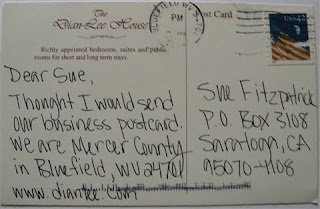 The
Dian-Lee House
Richly appointed bedrooms, suites and public
rooms for short and long term stays.
BLUEFIELD WV
PM
Post Card
USA
Dear Sue,
Thought I would send
our business postcard.
We are Mercer County
in Bluefield, WV 24701
www.dianlee.com
Sue Fitzpatrick
P.O. BOX 3108
Saratoga, CA
95070-1108